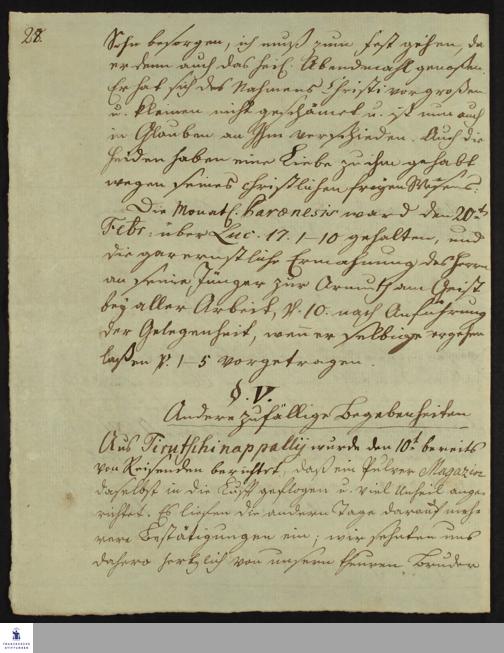 28.
Sohn besorgen, ich muß zum Fest gehen, da
er denn auch das heil. Abendmahl genoßen.
Er hat sich des Nahmens Christi vor großen
u. kleinen nicht geschämet u. ist nun auch
in Glauben an Ihn verschieden. Auch die
Heiden haben eine Liebe zu ihm gehabt
wegen seines christlichen Wesens.
Die Monathl. Paraenesis ward den 20ten
Febr: über Luc. 17. 1–10 gehalten, und
die gar ernstliche Ermahnung des Herrn
an seine Jünger zur Armuth am Geist
bey aller Arbeit, v. 10. nach Anführung
der Gelegenheit, wenn er selbige ergehen
laßen v. 1–5 vorgetragen.
§. V.
Andere zufällige Begebenheiten
Aus Tirutschinappallij wurde den 10t. bereits
von Reisenden berichtet, daß ein Pulver Magazin
daselbst in die Luft geflogen u. viel Unheil ange-
richtet. Es liefen die andern Tage darauf meh-
rere Bestätigungen ein; wir sehnten uns
dahero hertzlich von unserm theuren Bruder
FRANCKESCHE
STIFTUNGEN